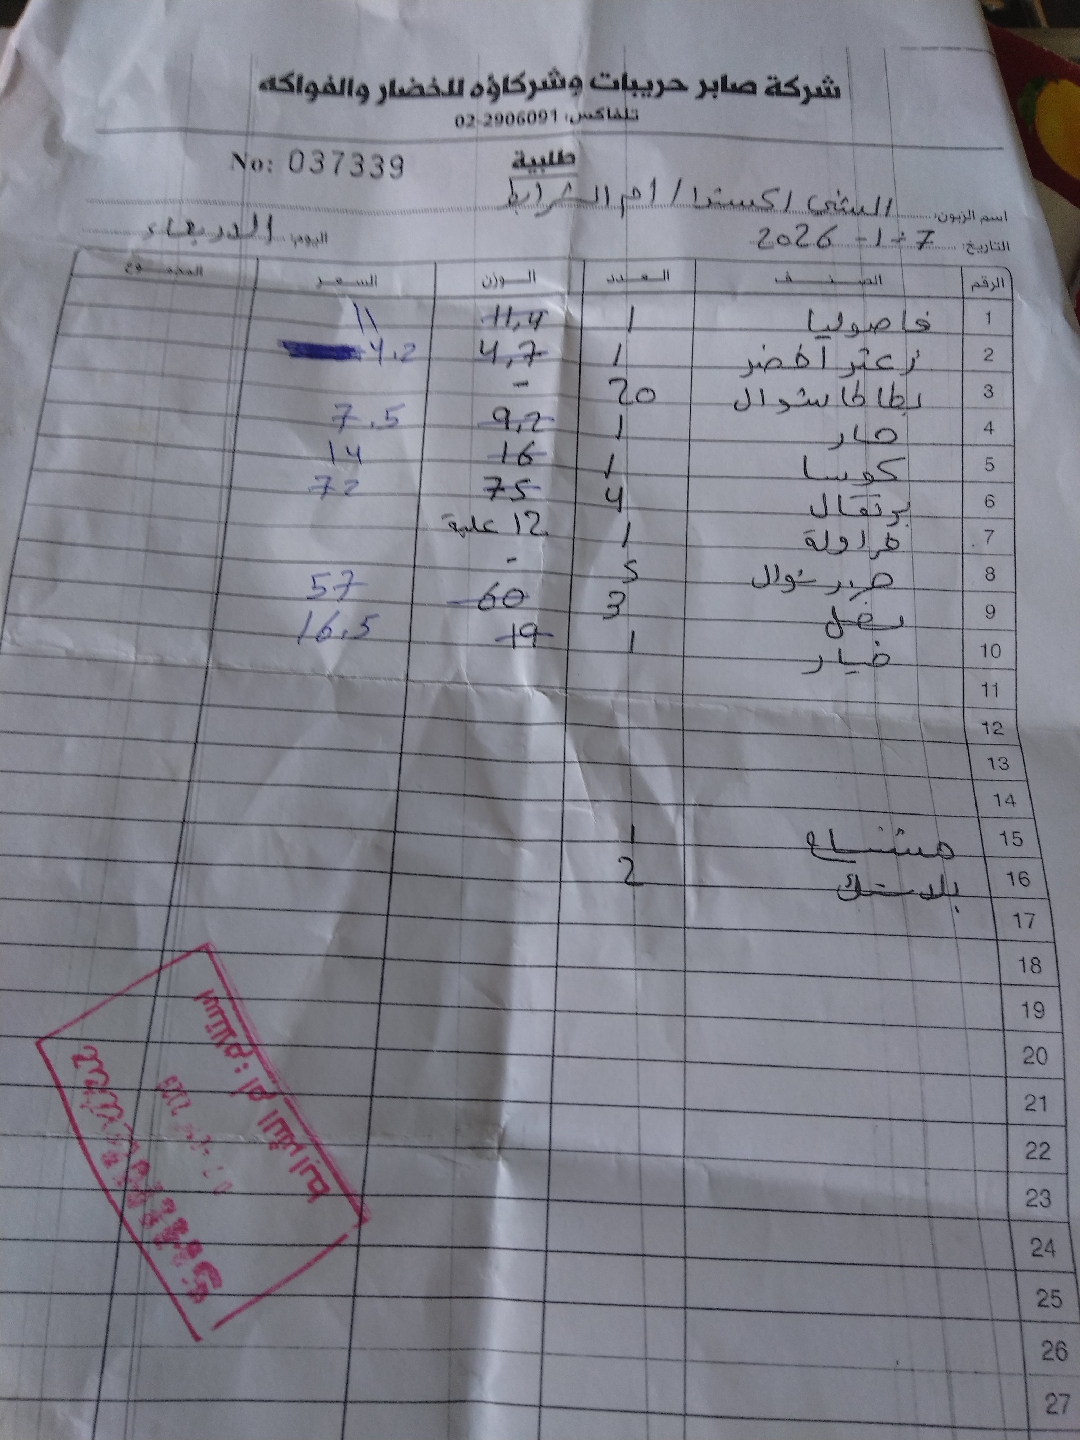 شركة صابر حريبات وشركاؤه للخضار والفواكه
تلفاكس: 02-2906091
طلبية
No: 037339
اسم الزبون: السني اكسترا / ام الشرايط
التاريخ: 7-1-2026 اليوم: الاربعاء
الرقم الصنف العدد الوزن السعر المجموع
1 فاصوليا 1 11,4 11
2 زعتر اخضر 1 4,7 4.2
3 بطاطا شوال 20 -
4 حار 1 9,2 7.5
5 كوسا 1 16 14
6 برتقال 4 75 72
7 فراولة 1 12 علبة
8 شوال 5 -
9 بصل 3 60 57
10 خيار 1 19 16.5
11
12
13
14
15 مشتاح 1
16 بلاستك 2
17
18
19
20
21
22
23
24
25
26
27